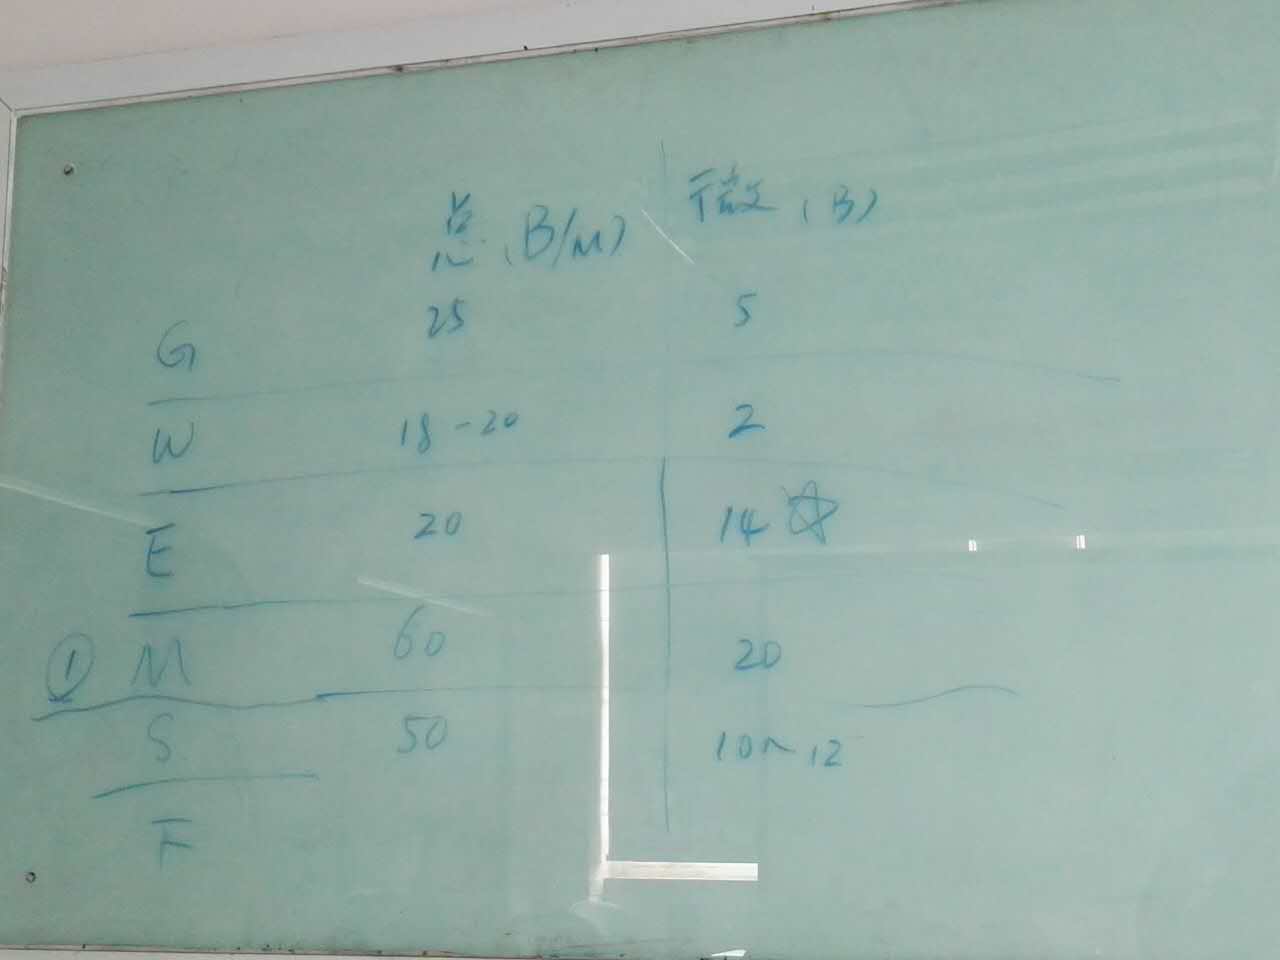 总(B/M) 微(B)
G 25 5
W 18-20 2
E 20 14☆
① M 60 20
S 50 10~12
F